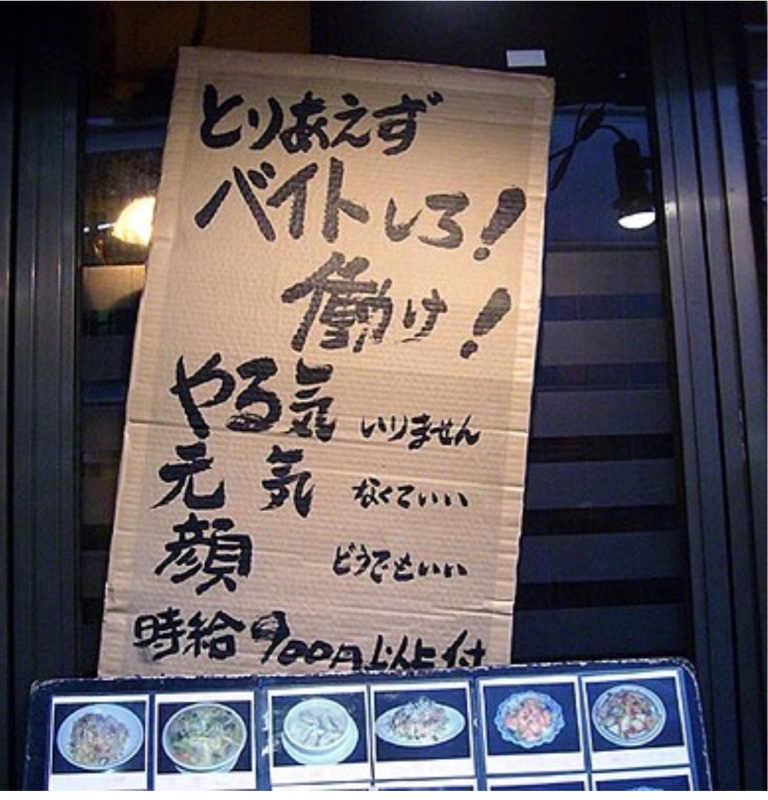 とりあえず
バイトしろ!
働け!
やる気 いりません
元気 なくていい
顔 どうでもいい
時給900円以上付